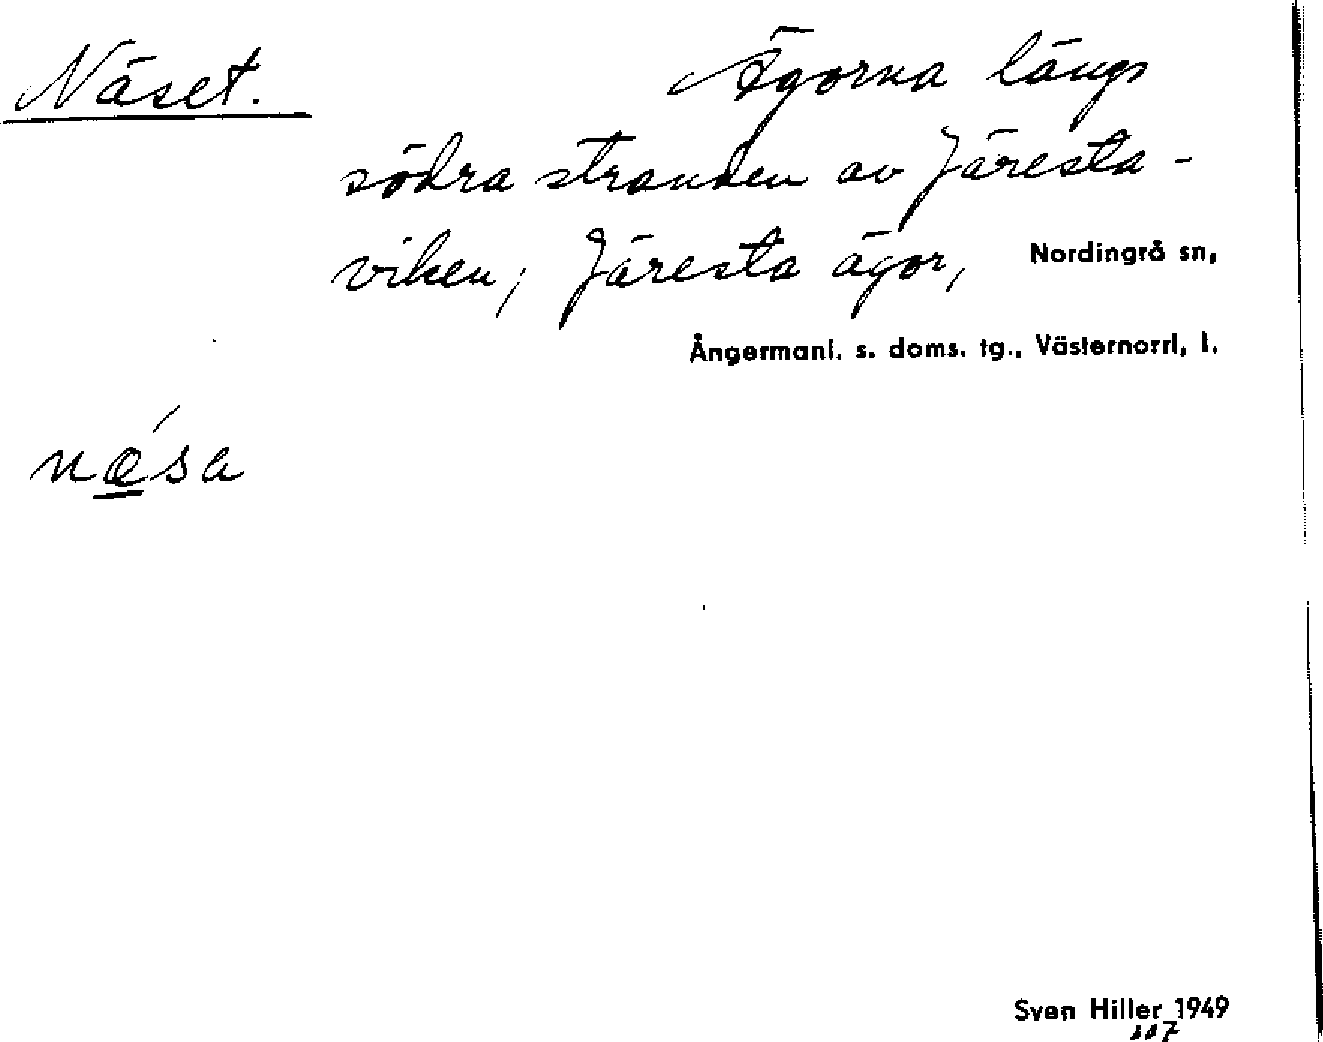 Näset.
Ägorna längs
södra stranden av Järesta-
viken, Järesta ägor, Nordingrå sn,
Ångermanl. s. doms. tg., Västernorrl, l.
nǽ̲sa
Sven Hiller 1949
117